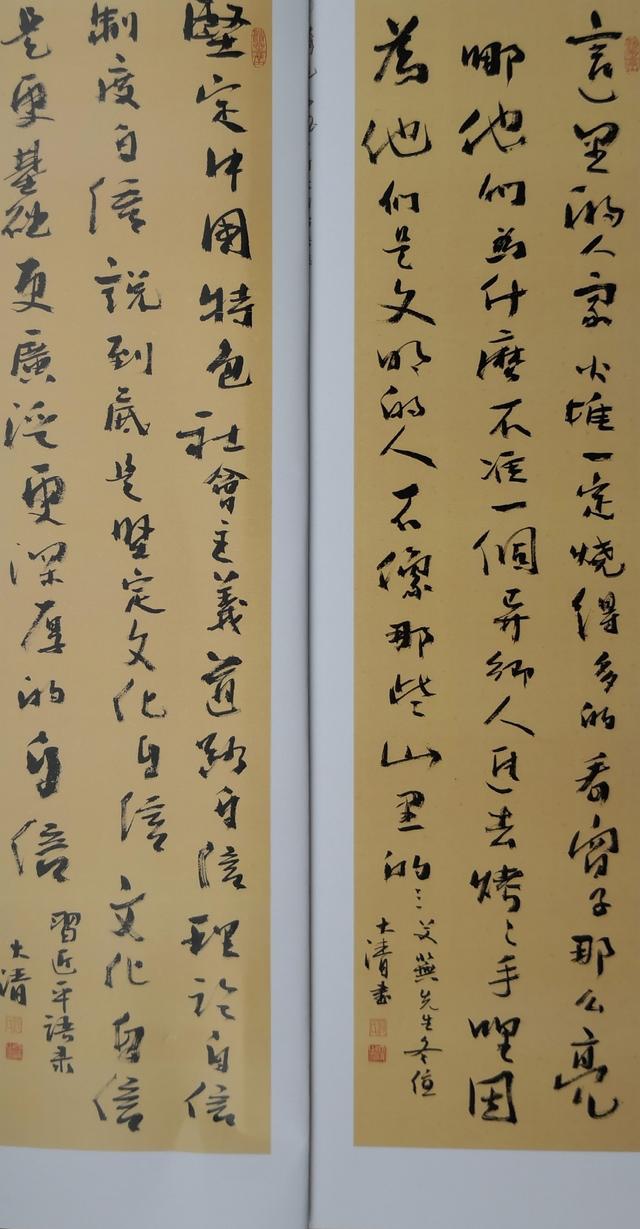 這里的人家火堆一定烧得多的看窗子那么亮
哪他们為什麼不准一個异鄉人進去烤々手哩因
為他们是文明的人不像那些山里的
艾蕪先生冬
大清書
堅定中國特色社會主義道路自信理論自信
制度自信説到底是堅定文化自信文化自信
是更基礎更廣泛更深厚的自信
習近平語录
大清